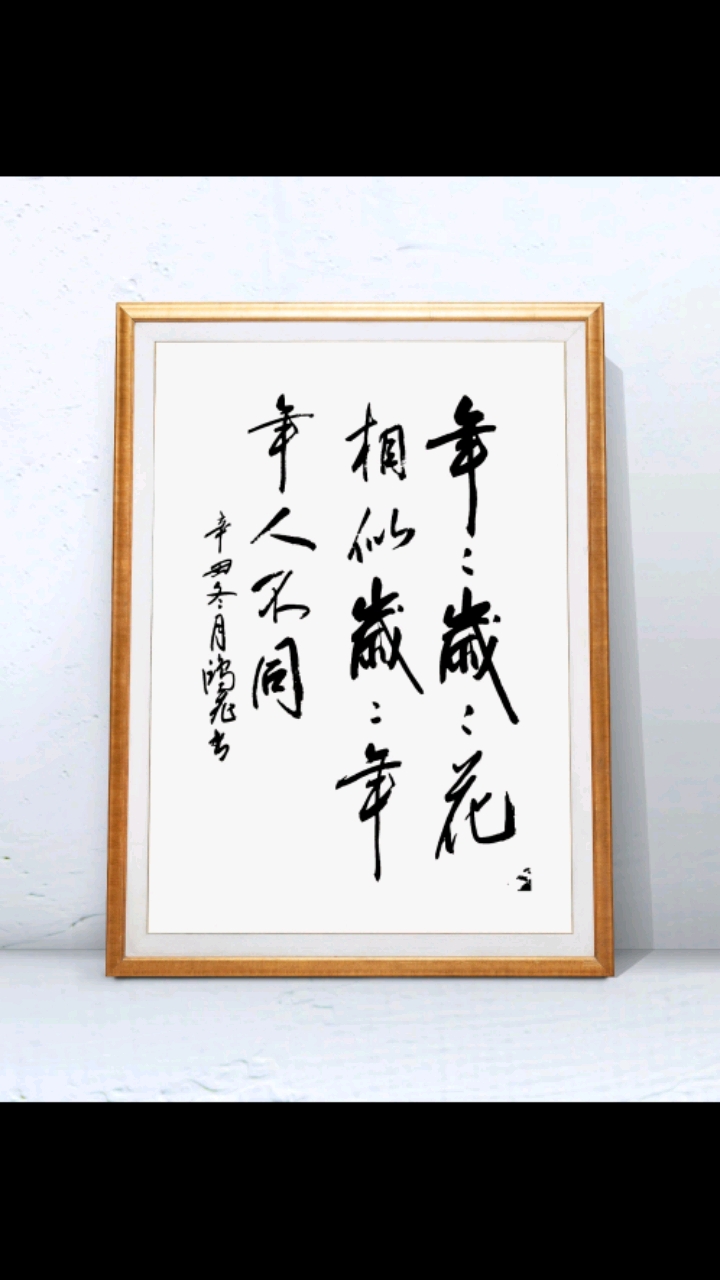 年〻歲〻花
相似歲〻年
年人不同
辛丑冬月鴻飛书